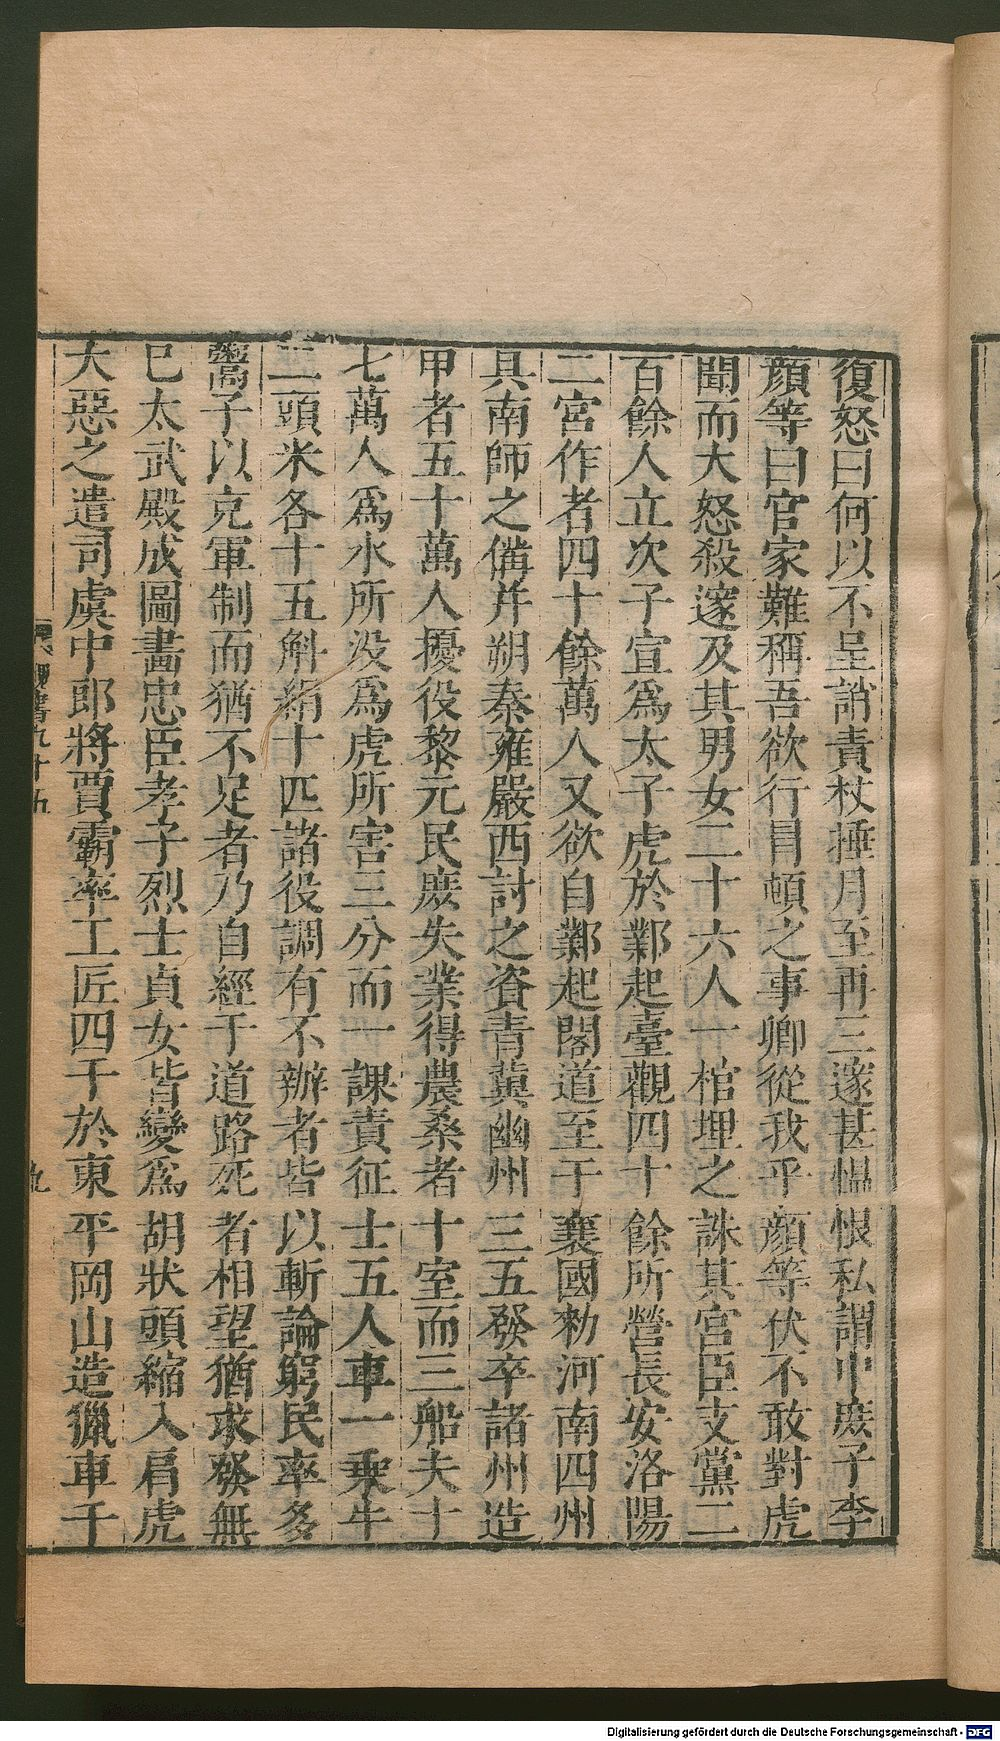 復怒曰何以不呈誚責杖捶月至再三邃甚慍恨私謂中庶子李
顏等曰官家難稱吾欲行冐頓之事卿從我乎顏等伏不敢對虎
聞而大怒殺邃及其男女二十六人一棺埋之誅其宮臣支黨二
百餘人立次子宣爲太子虎於鄴起臺觀四十餘所營長安洛陽
二宮作者四十餘萬人又欲自鄴起閣道至于襄國勑河南四州
具南師之備并朔秦雍嚴西討之資青冀幽州三五發卒諸州造
甲者五十萬人擾役黎元民庶失業得農桑者十室而三船夫十
七萬人爲水所没爲虎所害三分而一課責征士五人車一乘牛
二頭米各十五斛絹十匹諸役調有不辦者皆以斬論窮民率多
鬻子以充軍制而猶不足者乃自經于道路死者相望猶求發無
已太武殿成圖畵忠臣孝子烈士貞女皆變爲胡狀頭縮入肩虎
大惡之遣司虞中郎將賈霸率工匠四千於東平岡山造獵車千
書九十五
九
Digitalisierung gefördert durch die Deutsche Forschungsgemeinschaft - DFG